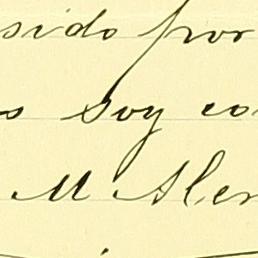 sido por
o soy co
M Alen